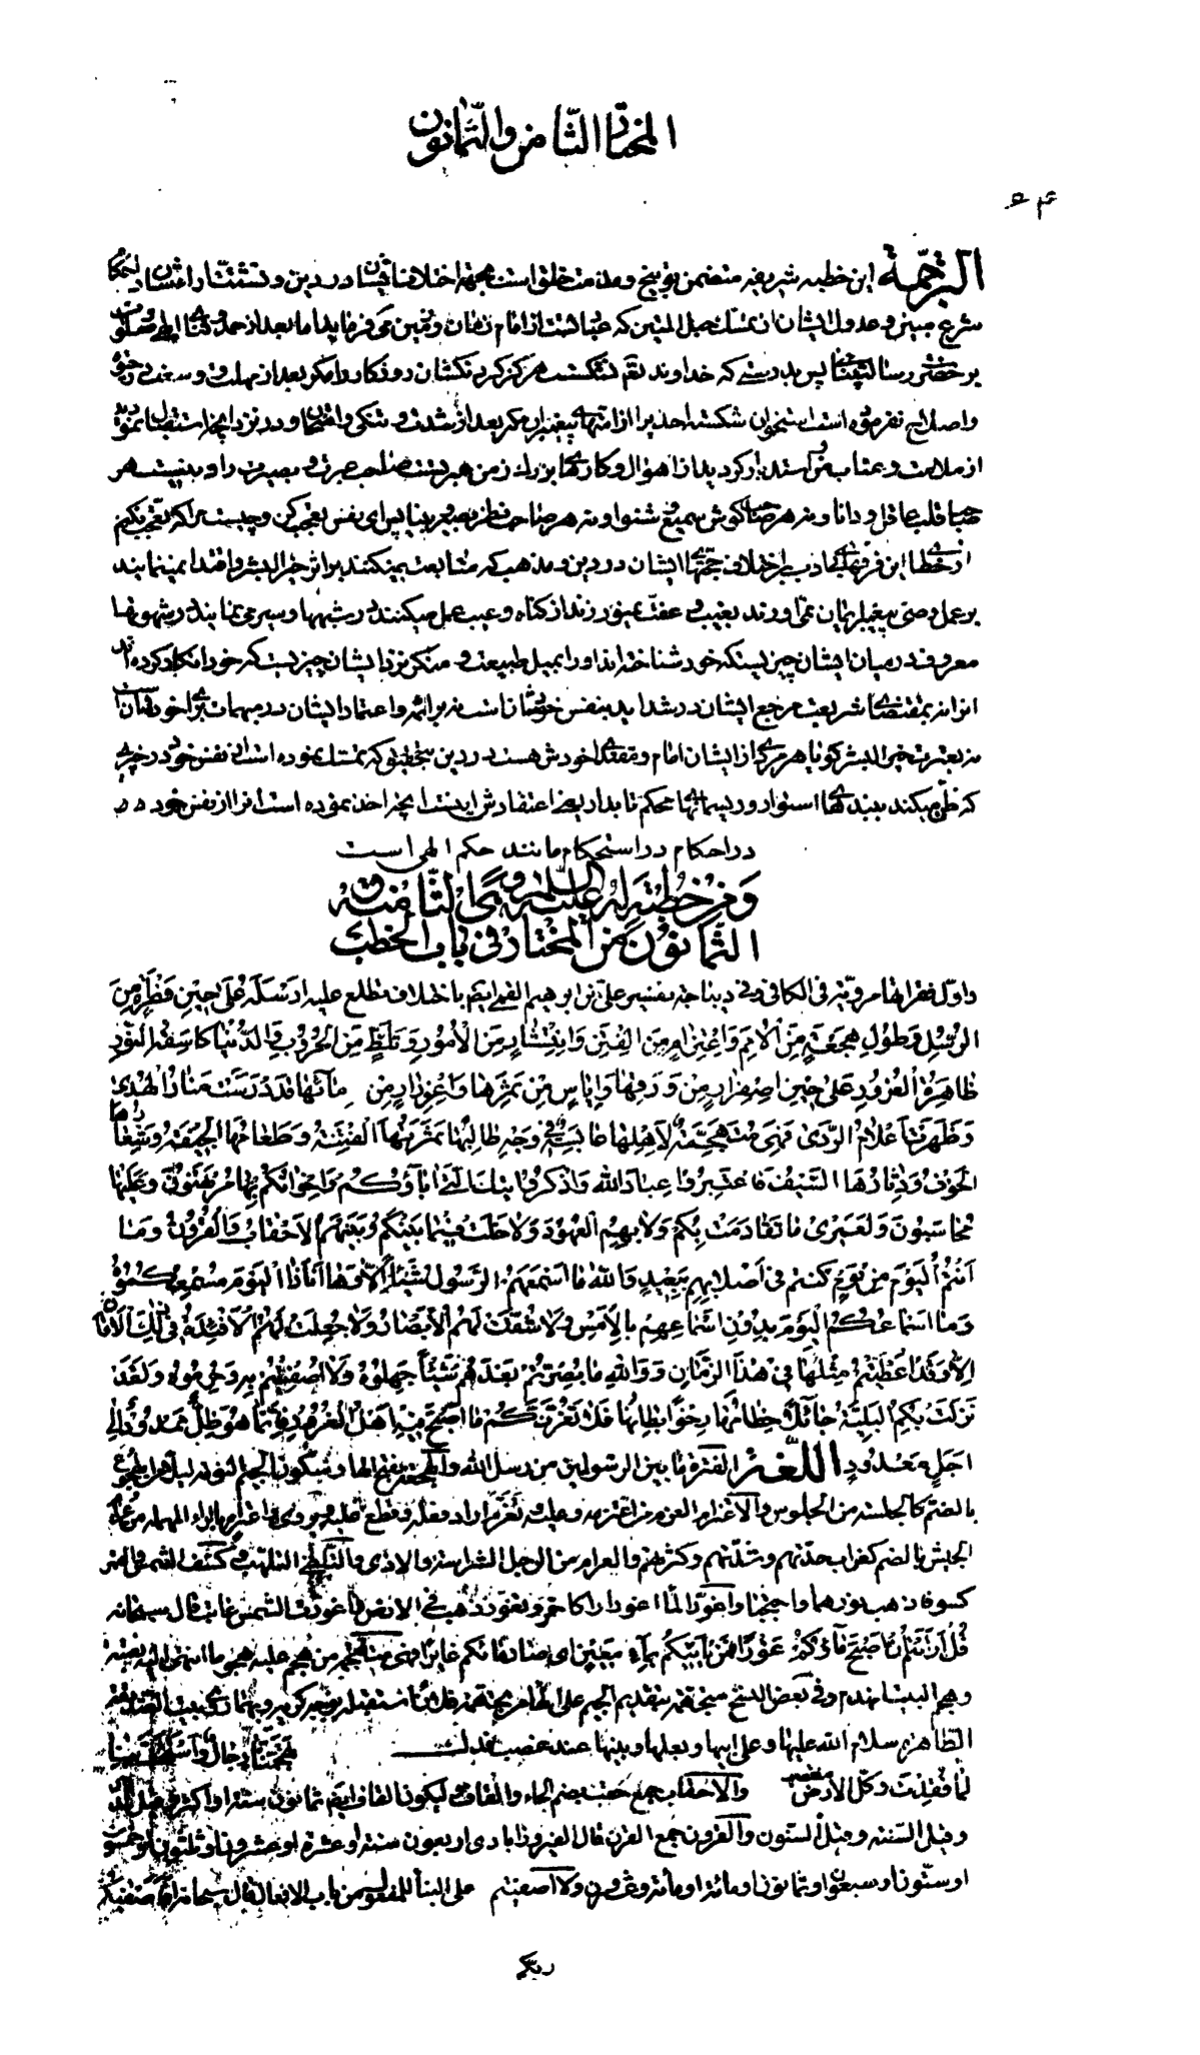 المختار الثامن والثمانون
الترجمة این خطبه شریفه متضمن توبیخ و مذمت خلق است بجهة اختلاف ایشان در دین و تشتت آراء ایشان در احکام
شرع مبین و عدول ایشان از تمسک حبل المتین که عبارتست از امام زمان و مبین می فرماید اما بعد از حمد و ثنای الهی و صلوات
بر حضرت رسالت پناهی پس بدرستی که خداوند تعالی نشکست هرگز گردنکشان روزگار را مگر بعد از مهلت و وسعت
و اصلاح نفرموده است استخوان شکسته احدی را از امتهای پیغمبران مگر بعد از شدت و تنگی و امتحان و در نزد آنچه استقبال نمودید
از ملامت و عتاب و استدبار کردید از اهوال و کارهای بزرگ از من عبرتست صاحب عبرت و بصیرت را و نیست هر
صاحب قلب عاقل و دانا و نه هر صاحب گوش سمیع و شنوا و نه هر صاحب نظر بصیر و بینا پس ای نفس تعجب کن و چیست مرا که تعجب نکنم
از خطای این فرقهای با اختلاف حجتهای ایشان در دین و مذهب که متابعت نمیکنند بر اثر خیر البشر و اقتدا نمینمایند
بر عمل وصی پیغمبر ایمان نمی آورند بغیب و عفت نمیورزند از گناه و عیب عمل میکنند در شبهها و سیر می نمایند در شهوتها
معروف در میان ایشان چیزیست که خود شناخته اند او را بمیل طبیعت و منکر نزد ایشان چیزیست که خود انکار کرده اند
آنرا نه بمقتضای شریعت مرجع ایشان در شداید بنفس خودشان است نه بر ائمه و اعتماد ایشان در مهمات برای خودشان است
نه بعترت خیر البشر گویا هر مردی از ایشان امام و مقتدای خودش هست در دین بتحقیق که تمسک نموده است از نفس خود در چیزی
که ظن میکند ببندهای استوار و ریسمانهای محکم تابدار یعنی اعتقادش اینست آنچه اخذ نموده است آنرا از نفس خود
در احکام در استحکام مانند حکم الهی است
ومن خطبة له عليه السلام وهی الثامنة
والثمانون من المختار فی باب الخطب
واول فقراتها مروية فی الکافی وفی ديباجة تفسير علی بن ابرهيم القمی ايضا باختلاف تطلع عليه ارسله علی حين فترة من
الرسل وطول هجعة من الامم واعتزام من الفتن وانتشار من الامور وتلظ من الحروب والدنيا کاسفة النور
ظاهرة الغرور علی حين اصفرار من ورقها واياس من ثمرها واغورار من مائها قد درست منار الهدی
وظهرت اعلام الردی فهی متجهمة لاهلها عابسة فی وجه طالبها ثمرتها الفتنة وطعامها الجيفة وشعارها
الخوف ودثارها السيف فاعتبروا عباد الله واذکروا تيک التی اباؤکم واخوانکم بها مرتهنون وعليها
محاسبون ولعمری ما تقادمت بکم ولا بهم العهود ولا خلت فيما بينکم وبينهم الاحقاب والقرون وما
انتم اليوم من يوم کنتم فی اصلابهم ببعيد والله ما اسمعهم الرسول شيئا الا وها انا ذا اليوم مسمعکموه
وما اسماعکم اليوم بدون اسماعهم بالامس ولا شقت لهم الابصار ولا جعلت لهم الافئدة فی ذلک الاوان
الا وقد اعطيتم مثلها فی هذا الزمان ووالله ما بصرتم بعدهم شيئا جهلوه ولا اصفيتم به وحرموه ولقد
نزلت بکم البلية جائلا خطامها رخوا بطانها فلا يغرنکم ما اصبح فيه اهل الغرور فانما هو ظل ممدود الی
اجل معدود اللغة الفترة ما بين الرسولين من رسل الله والهجعة بفتح الهاء وسکون الجيم النومة ليلا من الهجوع
بالضم کالجلسة من الجلوس والاعتزام العزم من اعتزمه وعليه وتعزم اراد فعله وقطع عليه ويروی واعترام بالراء المهملة من عرام
الجيش بالضم کغراب حدتهم وشدتهم وکثرتهم والعرام من الرجل الشراسة والاذی والتلظی التلهب وکسف الشمس والقمر
کسوفا ذهب نورهما واحتجبا واغور الماء اغورارا کاحمر وتغور ذهب فی الارض واغورت الشمس غابت قال سبحانه
قل ارايتم ان اصبح ماؤکم غورا فمن ياتيکم بماء معين او صار مائکم غايرا وهی متهجمة من هجم عليه هجوما انتهی اليه بغتة
وهجم البيت انهدم وفی بعض النسخ متجهمة بتقديم الجيم علی الهاء من تجهمه فلان استقبله بوجه کريه وبهما روی بيت الصديقة
الطاهرة سلام الله عليها وعلی ابيها وبعلها وبنيها عند غصب فدک تجهمتنا رجال واستخف بنا
لما فقدت وکل الارض مغتصب والاحقاب جمع حقب بضم الحاء والقاف وسکون القاف ايضا ثمانون سنة او اکثر وقيل الدهر
وقيل السنة وقيل الستون والقرون جمع القرن قال الفيروزابادی اربعون سنة او عشرة او عشرون او ثلثون او خمسون
او ستون او سبعون او ثمانون او مائة او مائة وعشرون ولا اصفيتم علی البناء للمفعول من باب الافعال قال سبحانه افاصفيکم
ربکم